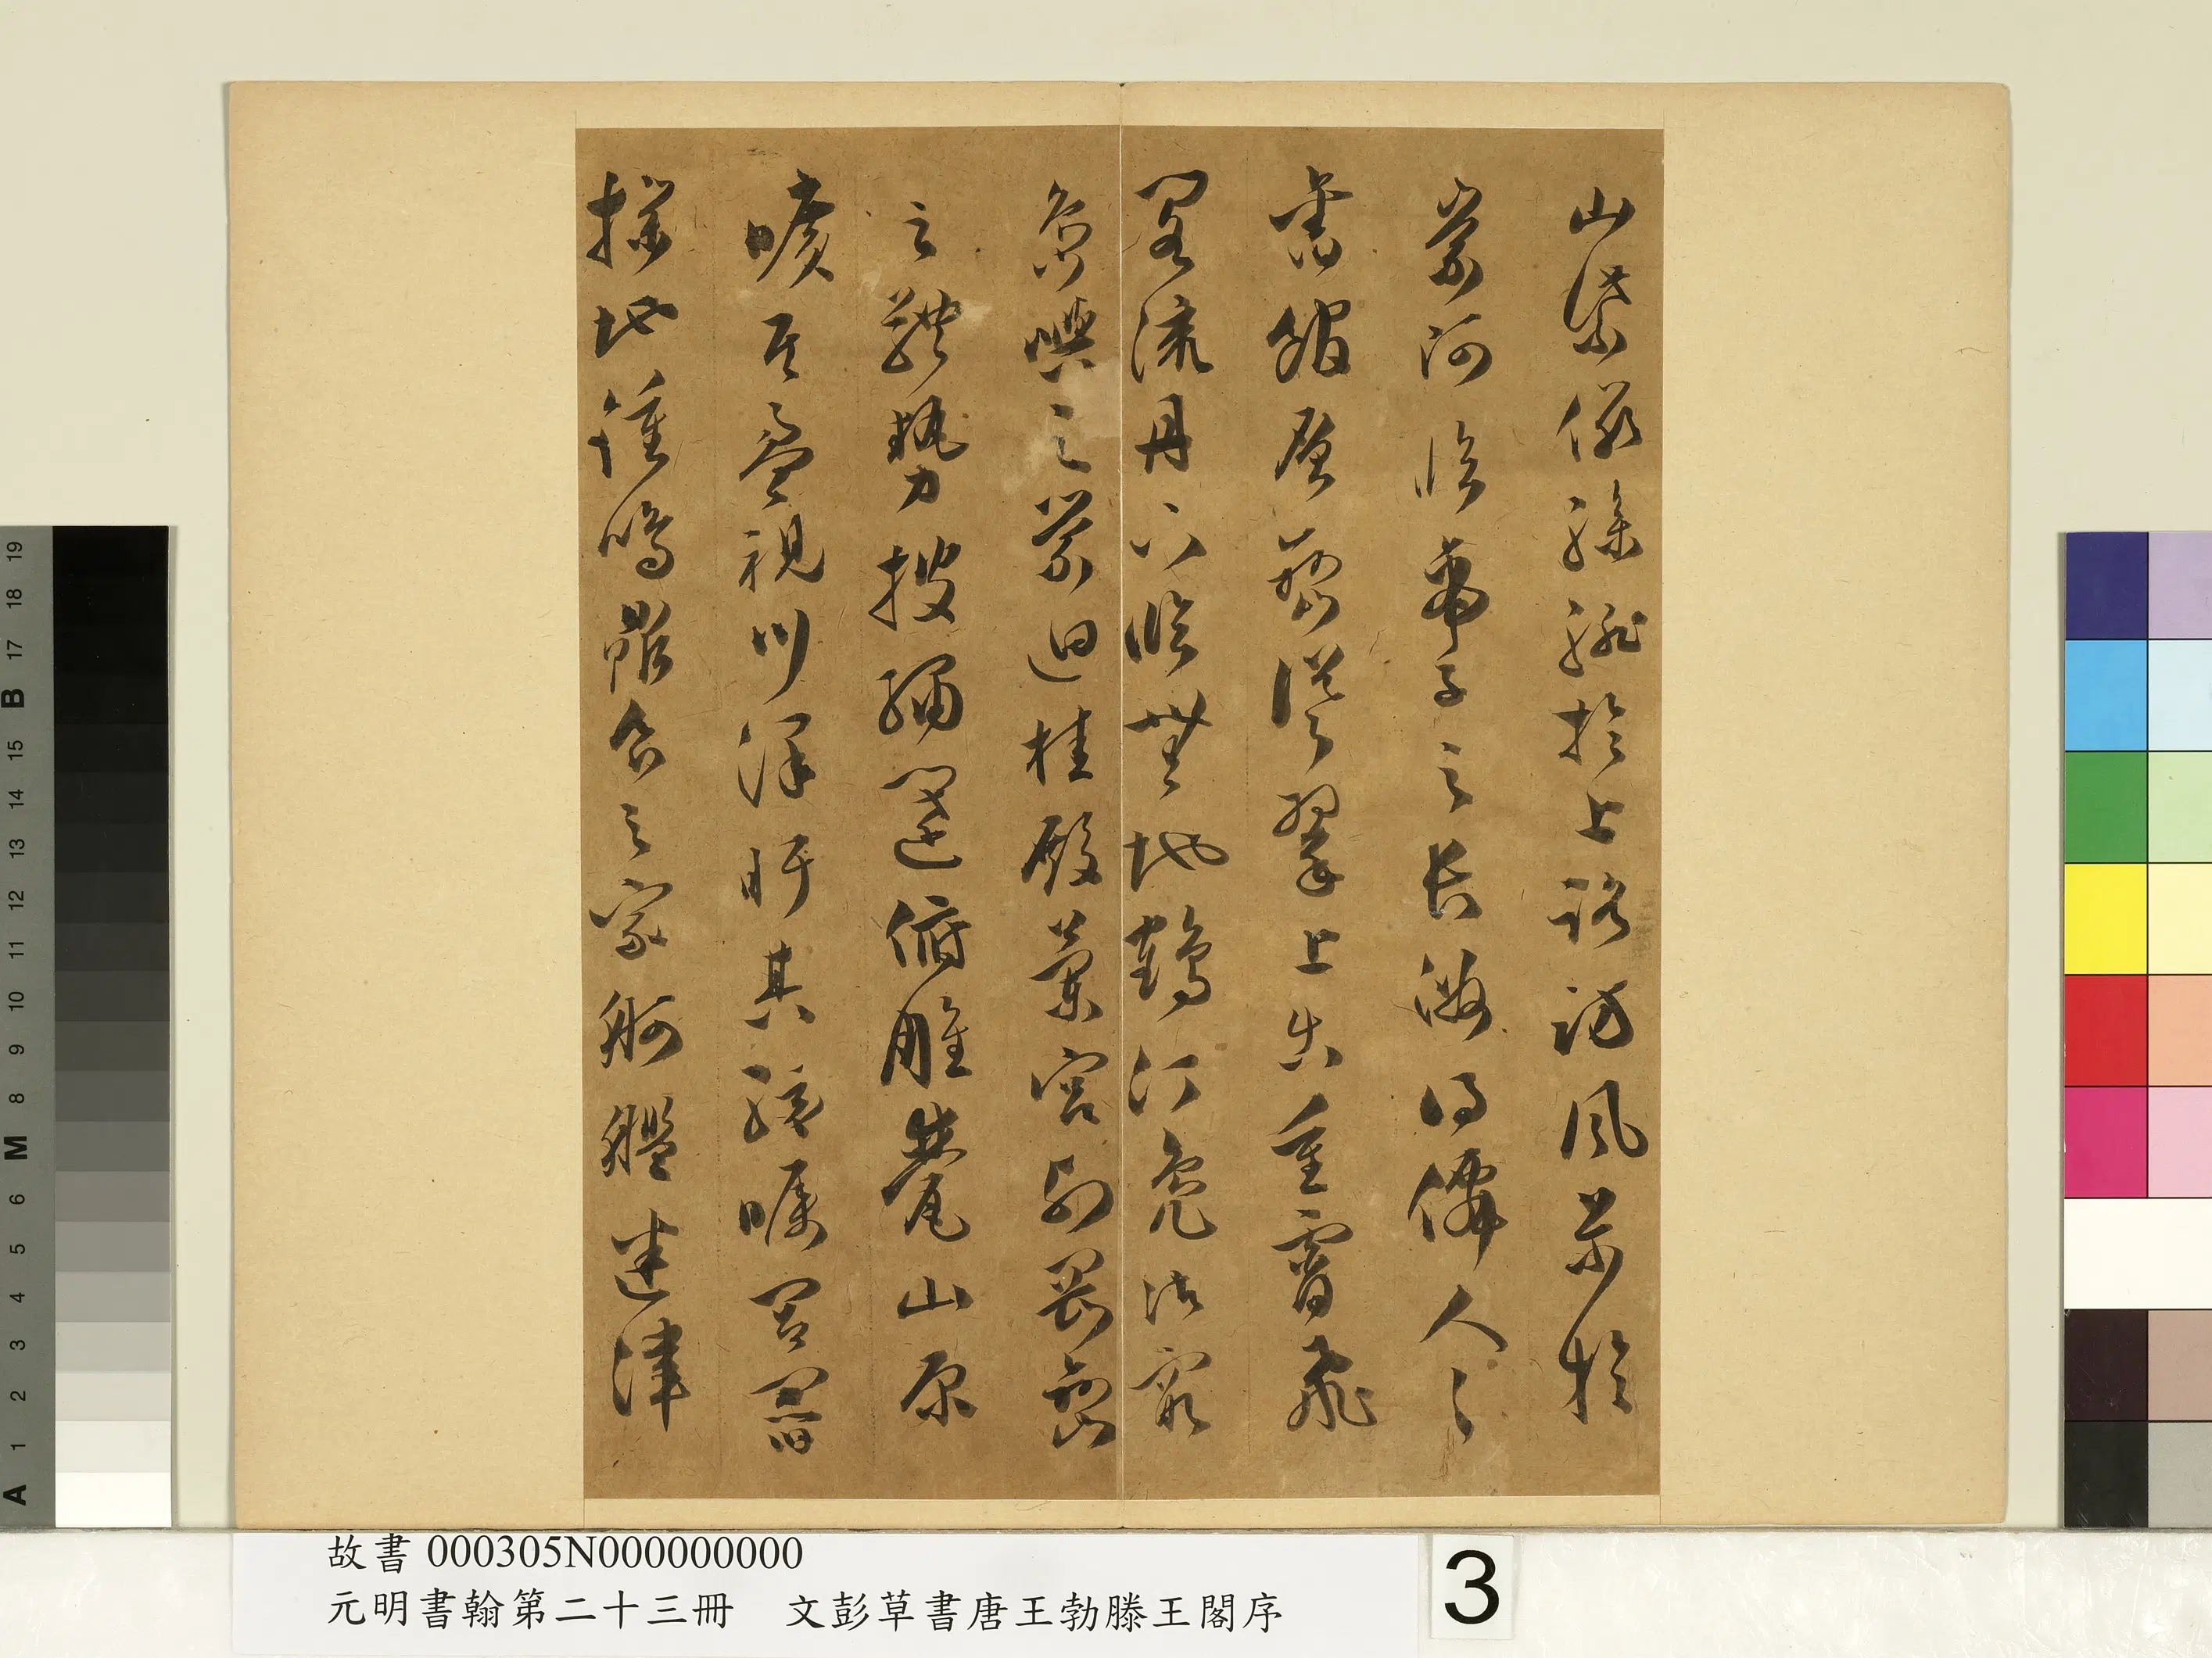 山紫儼驂騑於上路訪風景於
崇阿臨帝子之長洲得僊人之
舊館層巒聳翠上出重霄飛
閣流丹下臨無地鶴汀鳧渚窮
島嶼之縈迴桂殿蘭宮列岡巒
之體勢披繡闥俯雕甍山原
曠其盈視川澤盱其駭矚閭閻
撲地鍾鳴鼎食之家舸艦迷津
故書 000305N000000000
元明書翰第二十三冊 文彭草書唐王勃滕王閣序
3
19
18
17
B
15
14
13
12
11
10
9
8
M
6
5
4
3
2
1
A